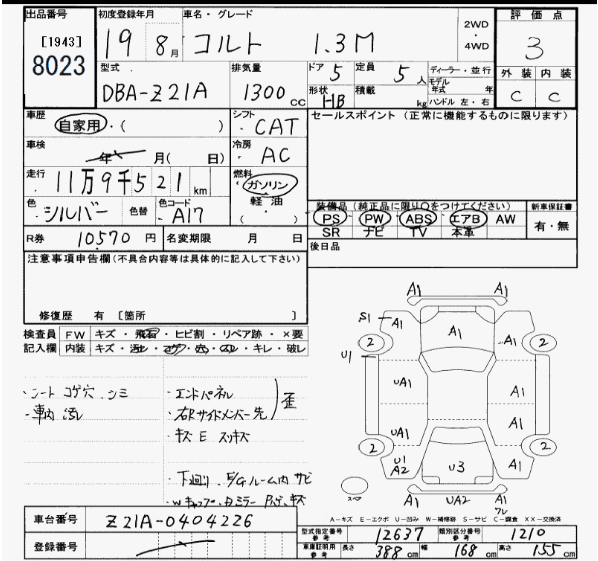 出品番号 初度登録年月 車名・グレード 2WD・4WD 評価点
[1943] 8023 19 8月 コルト 1.3M 3
型式 排気量 ドア 5 定員 5人 ディーラー・並行 外装 内装
DBA-Z21A 1300CC 形状 HB 積載 kg モデル年式 年 ハンドル 左・右 C C
車歴 自家用・( ) シフト CAT セールスポイント (正常に機能するものに限ります)
車検 年 月( 日) 冷房 AC
走行 11万9千521km 燃料 ガソリン 軽油 ( )
色 シルバー 色替 色コード A17 装備品 (純正品に限り○をつけてください) 新車保証書
PS PW ABS エアB AW 有・無
SR ナビ TV 本革
R券 10570円 名変期限 月 日 後日品
注意事項申告欄(不具合内容等は具体的に記入して下さい)
修復歴 有 [箇所 ]
検査員 FW キズ・飛石・ヒビ割・リペア跡・×要
記入欄 内装 キズ・汚れ・コゲ・穴・スレ・キレ・破レ
・シート コゲ穴 シミ
・車内 汚れ
・エンドパネル
・右Rサイドメンバー先 歪
・キズ E スリキズ
・下廻り
サビ
A1 A1
S1 A1 A1 A1
2 2
U1
UA1 A1
UA1 A1
U1 A2 U3 A1
2 2
A1 UA2 A1
A-キズ E-エクボ U-凹み W-補修跡 S-サビ C-腐食 XX-交換済
車台番号 Z21A-0404226
型式指定番号 参考 12637 類別区分番号 参考 1210
登録番号
車庫証明用 参考 長さ 388cm 幅 168cm 高さ 155cm